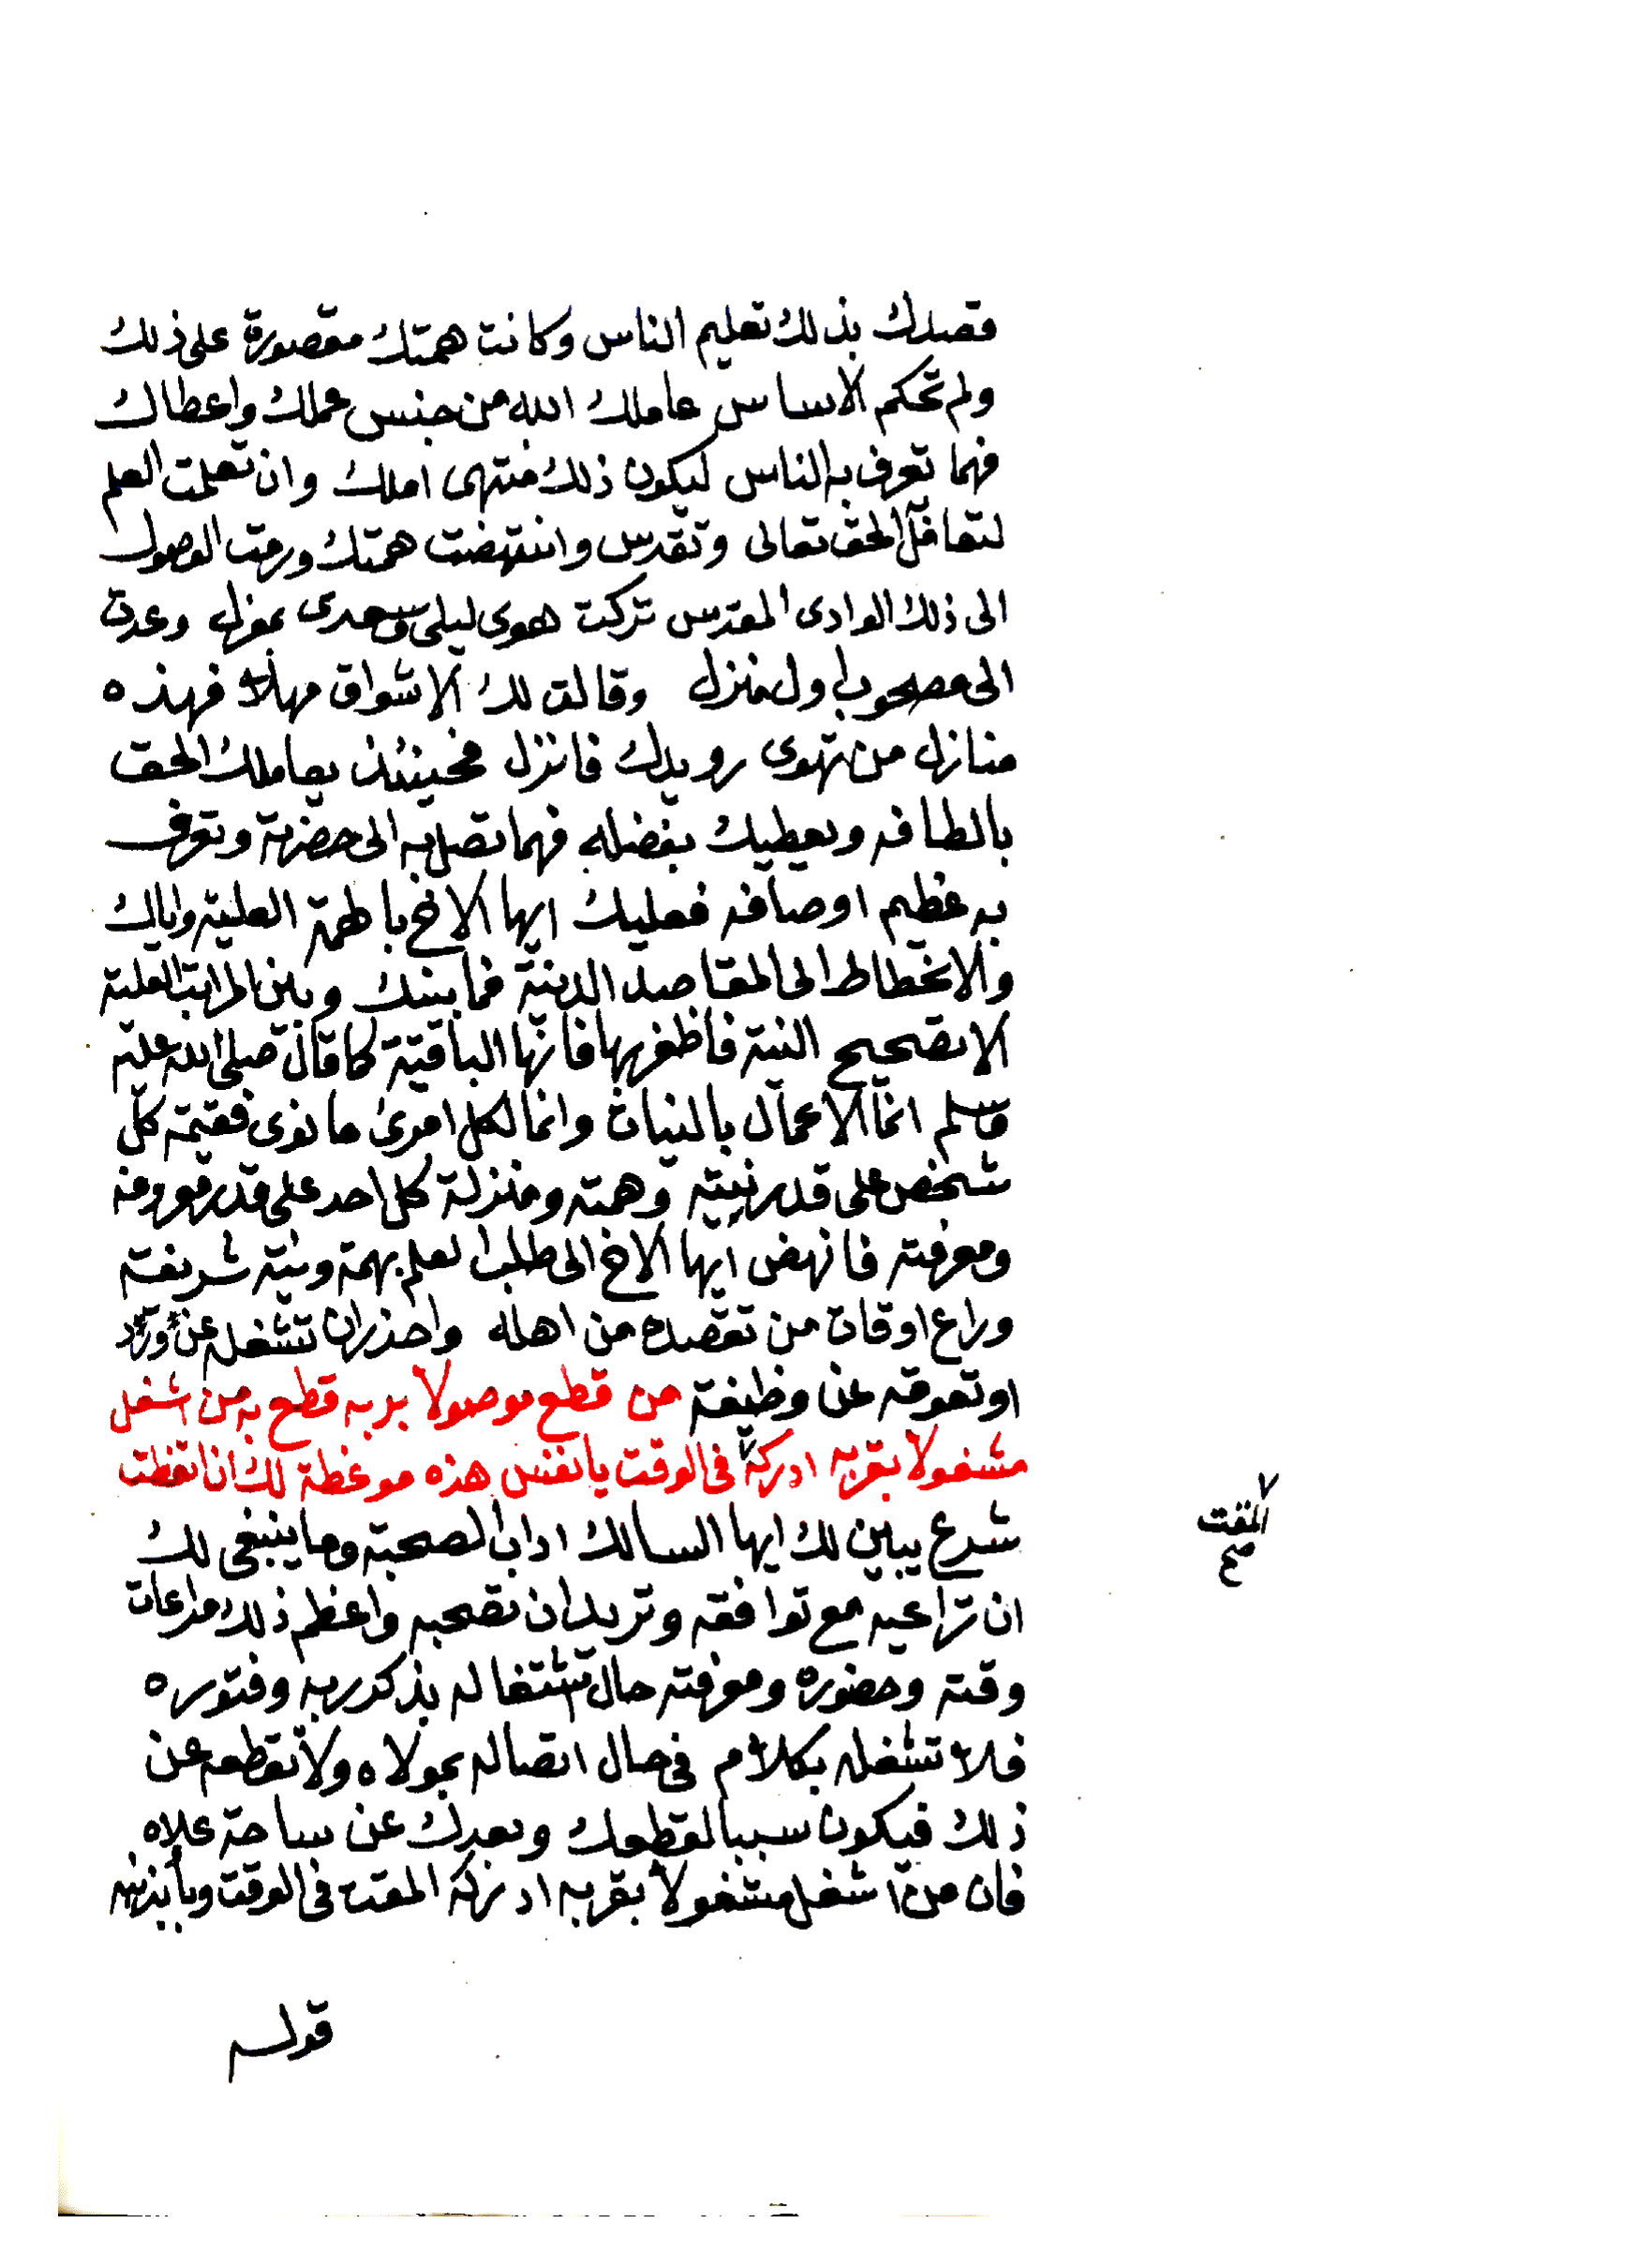 قصدك بذلك تعليم الناس وكانت همتك مقصورة على ذلك
ولم تحكم الاساس عاملك الله من جنس عملك واعطاك
فهما تعرف به الناس ليكون ذلك منتهى املك وان تعلمت العلم
لتعامل الحق تعالى وتقدس وانتهضت همتك ورمت الوصول
الى ذلك الوادى المقدس تركت هوى ليلى وسعدى بمعزل وعدت
الى مصحوب اول منزل وقالت لك الاشواق مهلا فهذه
منازل من تهوى رويدك فانزل فحينئذ يعاملك الحق
بالطافه ويعطيك بفضله فهما تصل به الى حضرته وتعرف
به عظيم اوصافه فعليك ايها الاخ بالهمة العلية واياك
والانخطاط الى المقاصد الدنية فما بينك وبين المراتب العلية
الا تصحيح النية فاظفر بها فانها الباقية كما قال صلى الله عليه
وسلم انما الاعمال بالنيات وانما لكل امرئ ما نوى فقيمة كل
شخص على قدر نيته وهمته ومنزلة كل احد على قدر معروفه
ومعرفته فانهض ايها الاخ الى طلب العلم بهمة ونية شريفة
وراع اوقات من تقصده من اهله واحذر ان تشغله عن ورد
او تعوقه عن وظيفة من قطع موصولا بربه قطع به من اشغل
مشغولا بقربه ادركه في الوقت يا نفس هذه موعظة لك ان اتعظت
شرع يبين لك ايها السالك اداب الصحبة وما ينبغى لك
ان تراعيه مع توافقه وتريد ان تصحبه واعظم ذلك مراعات
وقته وحضوره ومعرفته حال اشتغاله بذكر ربه وفتوره
فلا تشغله بكلام في حال اتصاله بمولاه ولا تقطعه عن
ذلك فيكون سببا لقطعك وبعدك عن ساحة علاه
فان من اشغل مشغولا بقربه ادركه المقت في الوقت
المقت
صح
قوله